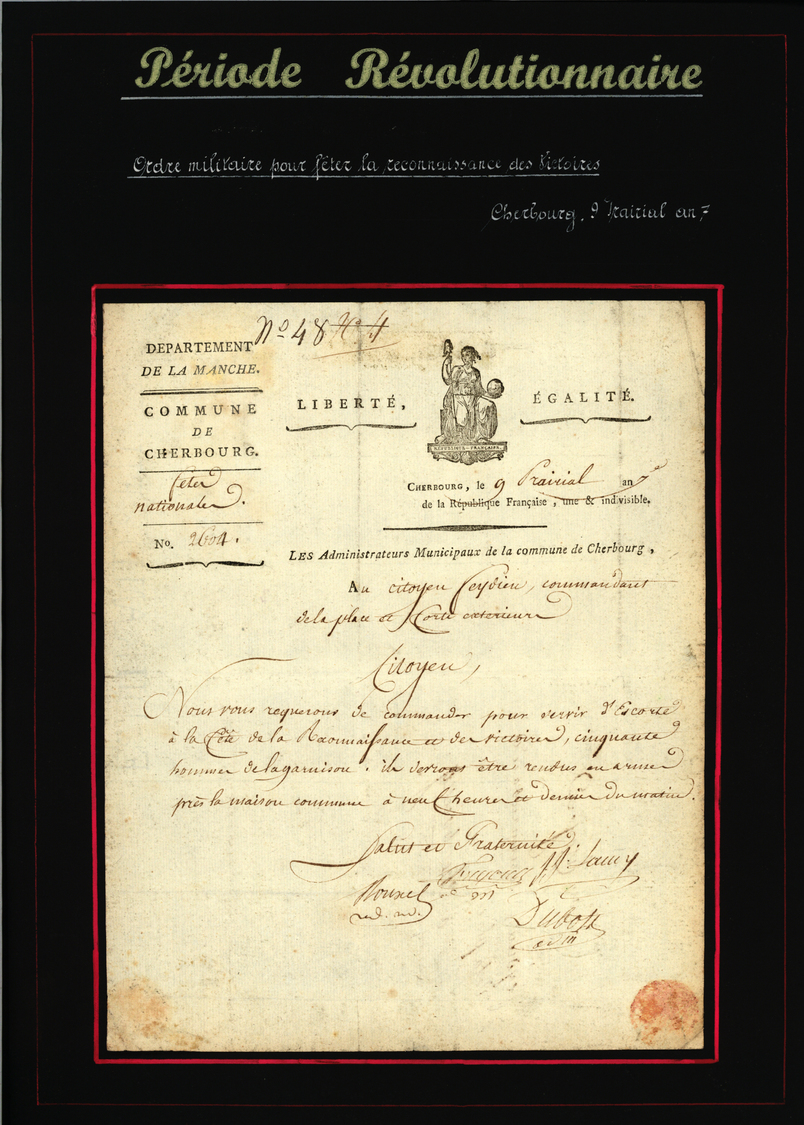 Période Révolutionnaire
Ordre militaire pour fêter la reconnaissance des Victoires
Cherbourg, 9 Prairial an 7
Nº 48 Nº 4
DEPARTEMENT
DE LA MANCHE.
COMMUNE
DE
CHERBOURG.
fêtes
nationales.
No. 2604.
LIBERTÉ,
ÉGALITÉ.
RÉPUBLIQUE FRANÇAISE.
CHERBOURG, le 9 Prairial an 7e
de la République Française, une & indivisible.
LES Administrateurs Municipaux de la commune de Cherbourg,
Au citoyen commandant
de la place et forts exterieurs
Citoyen,
Nous vous requerons de commander pour servir d'Escorte
à la fête de la Reconnaissance et des victoires, cinquante
hommes de la garnison. ils devront être rendus en armes
près la maison commune à neuf heures et demie du matin.
Salut et Fraternité
Dubost